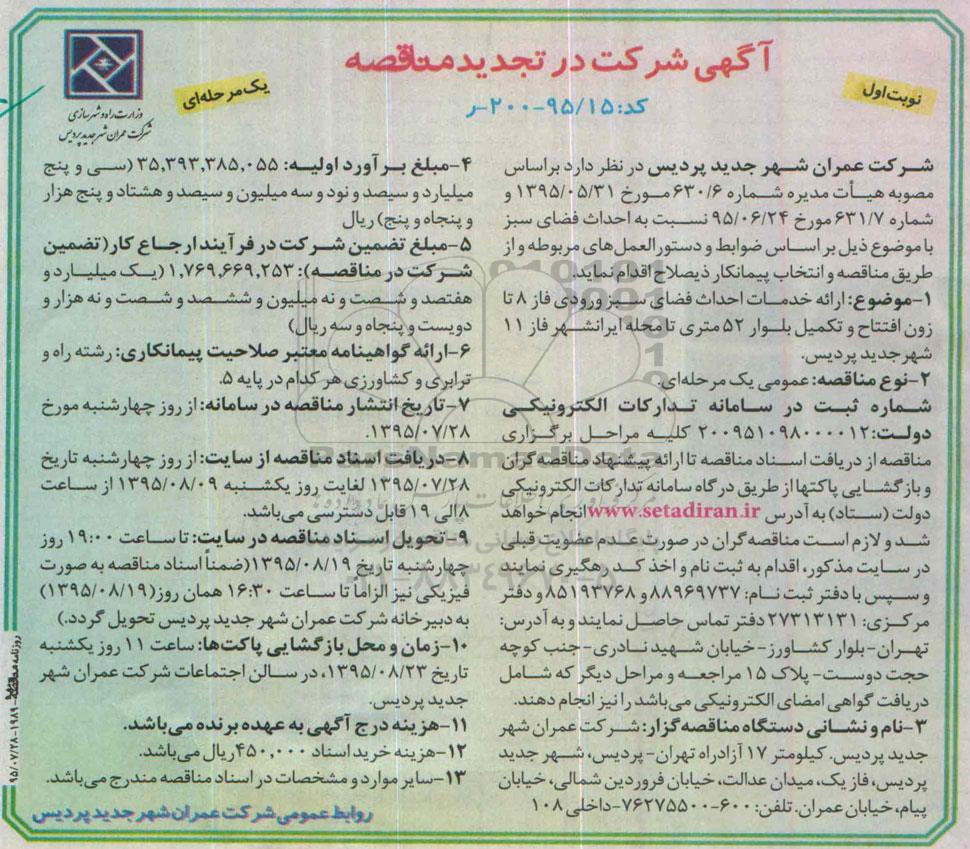 آگهی شرکت در تجدید مناقصه
کد: ۹۵/۱۵-۲۰۰-ر
نوبت اول
یک مرحله‌ای
وزارت راه و شهرسازی
شرکت عمران شهر جدید پردیس
شرکت عمران شهر جدید پردیس در نظر دارد براساس
مصوبه هیأت مدیره شماره ۶۳۰/۶ مورخ ۱۳۹۵/۰۵/۳۱ و
شماره ۶۳۱/۷ مورخ ۹۵/۰۶/۲۴ نسبت به احداث فضای سبز
با موضوع ذیل بر اساس ضوابط و دستورالعمل‌های مربوطه و از
طریق مناقصه و انتخاب پیمانکار ذیصلاح اقدام نماید.
۱-موضوع: ارائه خدمات احداث فضای سبز ورودی فاز ۸ تا
زون افتتاح و تکمیل بلوار ۵۲ متری تا محله ایرانشهر فاز ۱۱
شهر جدید پردیس.
۲-نوع مناقصه: عمومی یک مرحله‌ای.
شماره ثبت در سامانه تدارکات الکترونیکی
دولت: ۲۰۰۹۵۱۰۹۸۰۰۰۰۱۲ کلیه مراحل برگزاری
مناقصه از دریافت اسناد مناقصه تا ارائه پیشنهاد مناقصه گران
و بازگشایی پاکتها از طریق درگاه سامانه تدارکات الکترونیکی
دولت (ستاد) به آدرس www.setadiran.ir انجام خواهد
شد و لازم است مناقصه گران در صورت عدم عضویت قبلی
در سایت مذکور، اقدام به ثبت نام و اخذ کد رهگیری نمایند
و سپس با دفتر ثبت نام: ۸۸۹۶۹۷۳۷ و ۸۵۱۹۳۷۶۸ و دفتر
مرکزی: ۲۷۳۱۳۱۳۱ دفتر تماس حاصل نمایند و به آدرس:
تهران- بلوار کشاورز- خیابان شهید نادری- جنب کوچه
حجت دوست- پلاک ۱۵ مراجعه و مراحل دیگر که شامل
دریافت گواهی امضای الکترونیکی می‌باشد را نیز انجام دهند.
۳-نام و نشانی دستگاه مناقصه گزار: شرکت عمران شهر
جدید پردیس. کیلومتر ۱۷ آزادراه تهران- پردیس، شهر جدید
پردیس، فاز یک، میدان عدالت، خیابان فروردین شمالی، خیابان
پیام، خیابان عمران. تلفن: ۶۰۰-۷۶۲۷۵۵۰۰-داخلی ۱۰۸
۴-مبلغ برآورد اولیه: ۳۵,۳۹۳,۳۸۵,۰۵۵ (سی و پنج
میلیارد و سیصد و نود و سه میلیون و سیصد و هشتاد و پنج هزار
و پنجاه و پنج) ریال
۵-مبلغ تضمین شرکت در فرآیند ارجاع کار (تضمین
شرکت در مناقصه): ۱,۷۶۹,۶۶۹,۲۵۳ (یک میلیارد و
هفتصد و شصت و نه میلیون و ششصد و شصت و نه هزار و
دویست و پنجاه و سه ریال)
۶-ارائه گواهینامه معتبر صلاحیت پیمانکاری: رشته راه و
ترابری و کشاورزی هر کدام در پایه ۵.
۷-تاریخ انتشار مناقصه در سامانه: از روز چهارشنبه مورخ
۱۳۹۵/۰۷/۲۸.
۸-دریافت اسناد مناقصه از سایت: از روز چهارشنبه تاریخ
۱۳۹۵/۰۷/۲۸ لغایت روز یکشنبه ۱۳۹۵/۰۸/۰۹ از ساعت
۸ الی ۱۹ قابل دسترسی می‌باشد.
۹-تحویل اسناد مناقصه در سایت: تا ساعت ۱۹:۰۰ روز
چهارشنبه تاریخ ۱۳۹۵/۰۸/۱۹ (ضمناً اسناد مناقصه به صورت
فیزیکی نیز الزاماً تا ساعت ۱۶:۳۰ همان روز (۱۳۹۵/۰۸/۱۹)
به دبیرخانه شرکت عمران شهر جدید پردیس تحویل گردد.)
۱۰-زمان و محل بازگشایی پاکت‌ها: ساعت ۱۱ روز یکشنبه
تاریخ ۱۳۹۵/۰۸/۲۳، در سالن اجتماعات شرکت عمران شهر
جدید پردیس.
۱۱-هزینه درج آگهی به عهده برنده می‌باشد.
۱۲-هزینه خرید اسناد ۴۵۰,۰۰۰ ریال می‌باشد.
۱۳-سایر موارد و مشخصات در اسناد مناقصه مندرج می‌باشد.
روابط عمومی شرکت عمران شهر جدید پردیس
۹۵/۰۷/۲۸-۱۹۸۱
ParsNamadData
۰۲۱-۸۸۳۴۹۶۷۰-۵